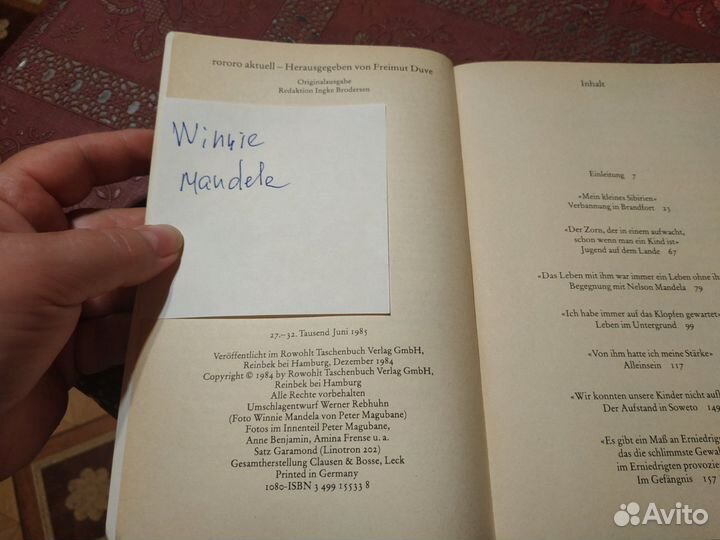 rororo aktuell – Herausgegeben von Freimut Duve
Originalausgabe
Redaktion Ingke Brodersen
Winnie
Mandela
27.–32. Tausend Juni 1985
Veröffentlicht im Rowohlt Taschenbuch Verlag GmbH,
Reinbek bei Hamburg, Dezember 1984
Copyright © 1984 by Rowohlt Taschenbuch Verlag GmbH,
Reinbek bei Hamburg
Alle Rechte vorbehalten
Umschlagentwurf Werner Rebhuhn
(Foto Winnie Mandela von Peter Magubane)
Fotos im Innenteil Peter Magubane,
Anne Benjamin, Amina Frense u. a.
Satz Garamond (Linotron 202)
Gesamtherstellung Clausen & Bosse, Leck
Printed in Germany
1080-ISBN 3 499 15533 8
Inhalt
Einleitung 7
«Mein kleines Sibirien»
Verbannung in Brandfort 25
«Der Zorn, der in einem aufwacht,
schon wenn man ein Kind ist»
Jugend auf dem Lande 67
«Das Leben mit ihm war immer ein Leben ohne ih
Begegnung mit Nelson Mandela 79
«Ich habe immer auf das Klopfen gewartet
Leben im Untergrund 99
«Von ihm hatte ich meine Stärke»
Alleinsein 117
«Wir konnten unsere Kinder nicht aufh
Der Aufstand in Soweto 149
«Es gibt ein Maß an Erniedrig
das die schlimmste Gewal
im Erniedrigten provozie
Im Gefängnis 157
Avito